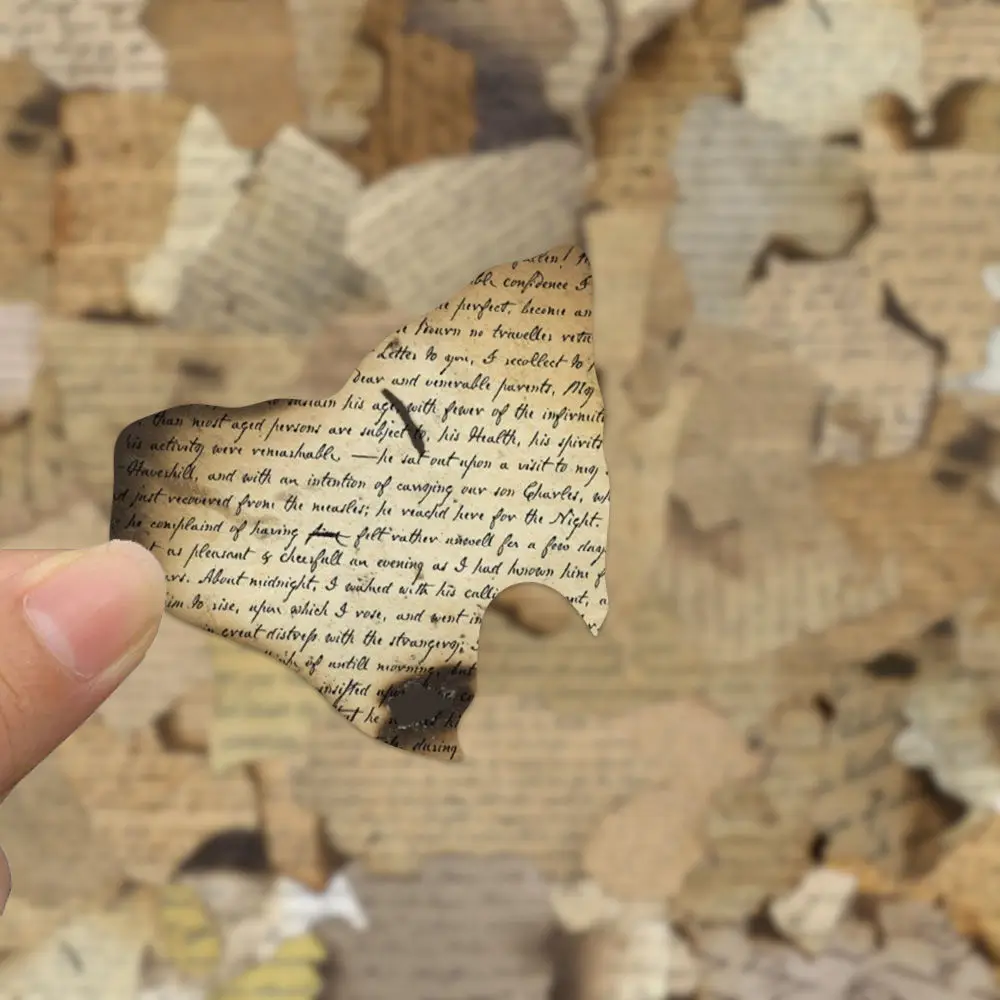 ble confidence I
perfect, become an
Bourn no traveller retu
Letter to you, I recollect to
Dear and venerable parents, My
sustain his age, with fewer of the infirmit
than most aged persons are subject to, his Health, his spirits
his activity were remarkable — he sat out upon a visit to my
Haverhill, and with an intention of carrying our son Charles, wh
d just recovered from the measles; he reachd here for the Night.
he complaind of having felt rather unwell for a few days
t as pleasant & cheerfull an evening as I had known him f
urs. About midnight, I waked with his calli ent, a
him to rise, upon which I rose, and went in
in great distress with the strangery;
think of untill morning, but
insisted upon
that he
during